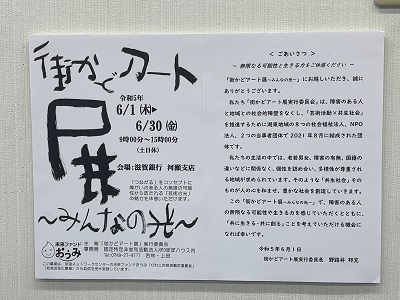 街かどアート
展
～みんなの光～
令和5年
6/1(木)▶
6/30(金)
9時00分～15時00分
(土日休)
会場:滋賀銀行 河瀬支店
「つながる」をコンセプトに
障がいのある人の無限の可能
未来ファンド
おうみ
主 催「街かどアート展」実行委員会
< ごあいさつ >
～ 無限なる可能性と生きる力をご体感ください ～
「街かどアート展～みんなの光～」にお越しいただき、誠に
ありがとうございます。
私たち「街かどアート展実行委員会」は、障害のある人
と地域との社会的障壁をなくし、「芸術活動×共生社会」
を推進するために湖東地域の8つの社会福祉法人、NPO
法人、2つの当事者団体で2021年8月に結成された団体
です。
私たちの生活の中では、老若男女、障害の有無、国籍の
違いなどに関係なく、個性を認め合い、多様性が尊重さ
れる地域が求められています。そのような「共生社会」その
ものが人の心を和ませ、豊かな社会を創造していきます。
この度の「街かどアート展～みんなの光～」で、障害のある人
の無限なる可能性や生きる力を感じていただくとともに、
「共に生きる・共に創る」ことを考えていただける機会に
なれば幸いです。
令和5年6月1日
街かどアート展実行委員会